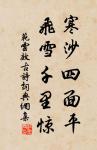 寒沙四面平
飛雪千里驚
范雲效古詩詞典網集